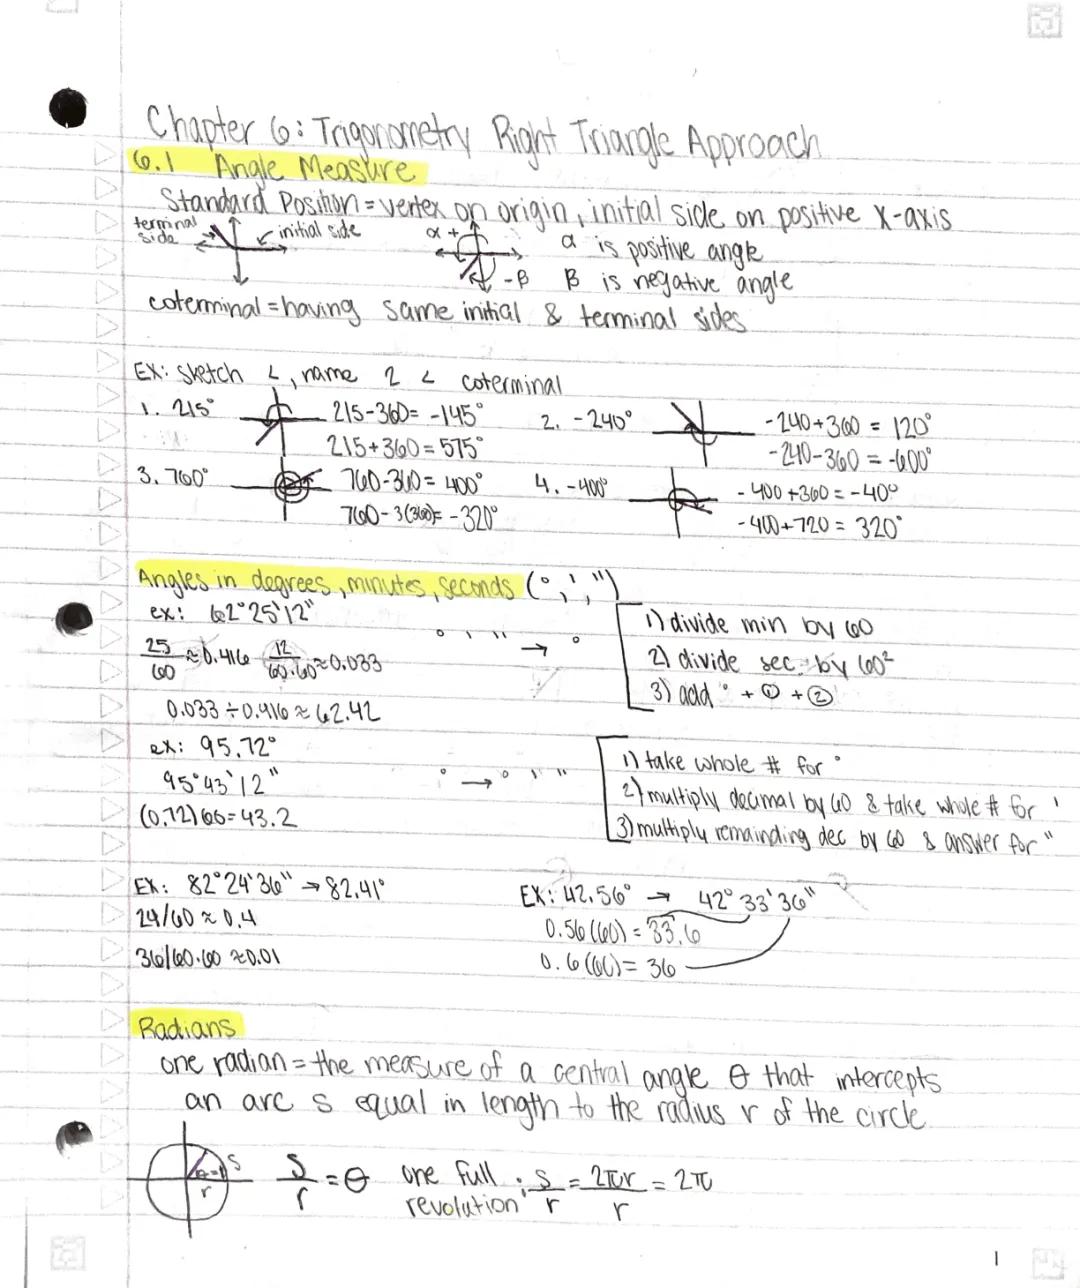 Chapter 6: Trigonometry Right Triangle Approach
6.1 Angle Measure
Standard Position = vertex on origin, initial side on positive x-axis
terminal side
initial side
α +
-β
α is positive angle
B is negative angle
coterminal = having same initial & terminal sides
EX: sketch ∠, name 2 ∠ coterminal
1. 215°
215-360= -145°
215+360=575°
2. -240°
-240+360 = 120°
-240-360 = -600°
3. 760°
760-360= 400°
760-3(360)= -320°
4. -400°
-400+360 = -40°
-400+720 = 320°
Angles in degrees, minutes, seconds (°, ', ")
ex: 62°25'12"
25/60 ≈ 0.416 12/60·60 ≈ 0.033
0.033 ÷ 0.416 ≈ 62.42
° ' " → °
1) divide min by 60
2) divide sec by 60²
3) add ° + ① + ②
ex: 95.72°
95°43'12"
(0.72)60=43.2
° → ° ' "
1) take whole # for °
2) multiply decimal by 60 & take whole # for '
3) multiply remainding dec by 60 & answer for "
EX: 82°24'36" → 82.41°
24/60 ≈ 0.4
36/60·60 ≈ 0.01
EX: 42.56° → 42° 33' 36"
0.56(60) = 33.6
0.6(60)= 36
Radians
one radian = the measure of a central angle θ that intercepts
an arc s equal in length to the radius r of the circle
θ=1 s
r
s/r = θ
one full revolution: s/r = 2πr/r = 2π
1